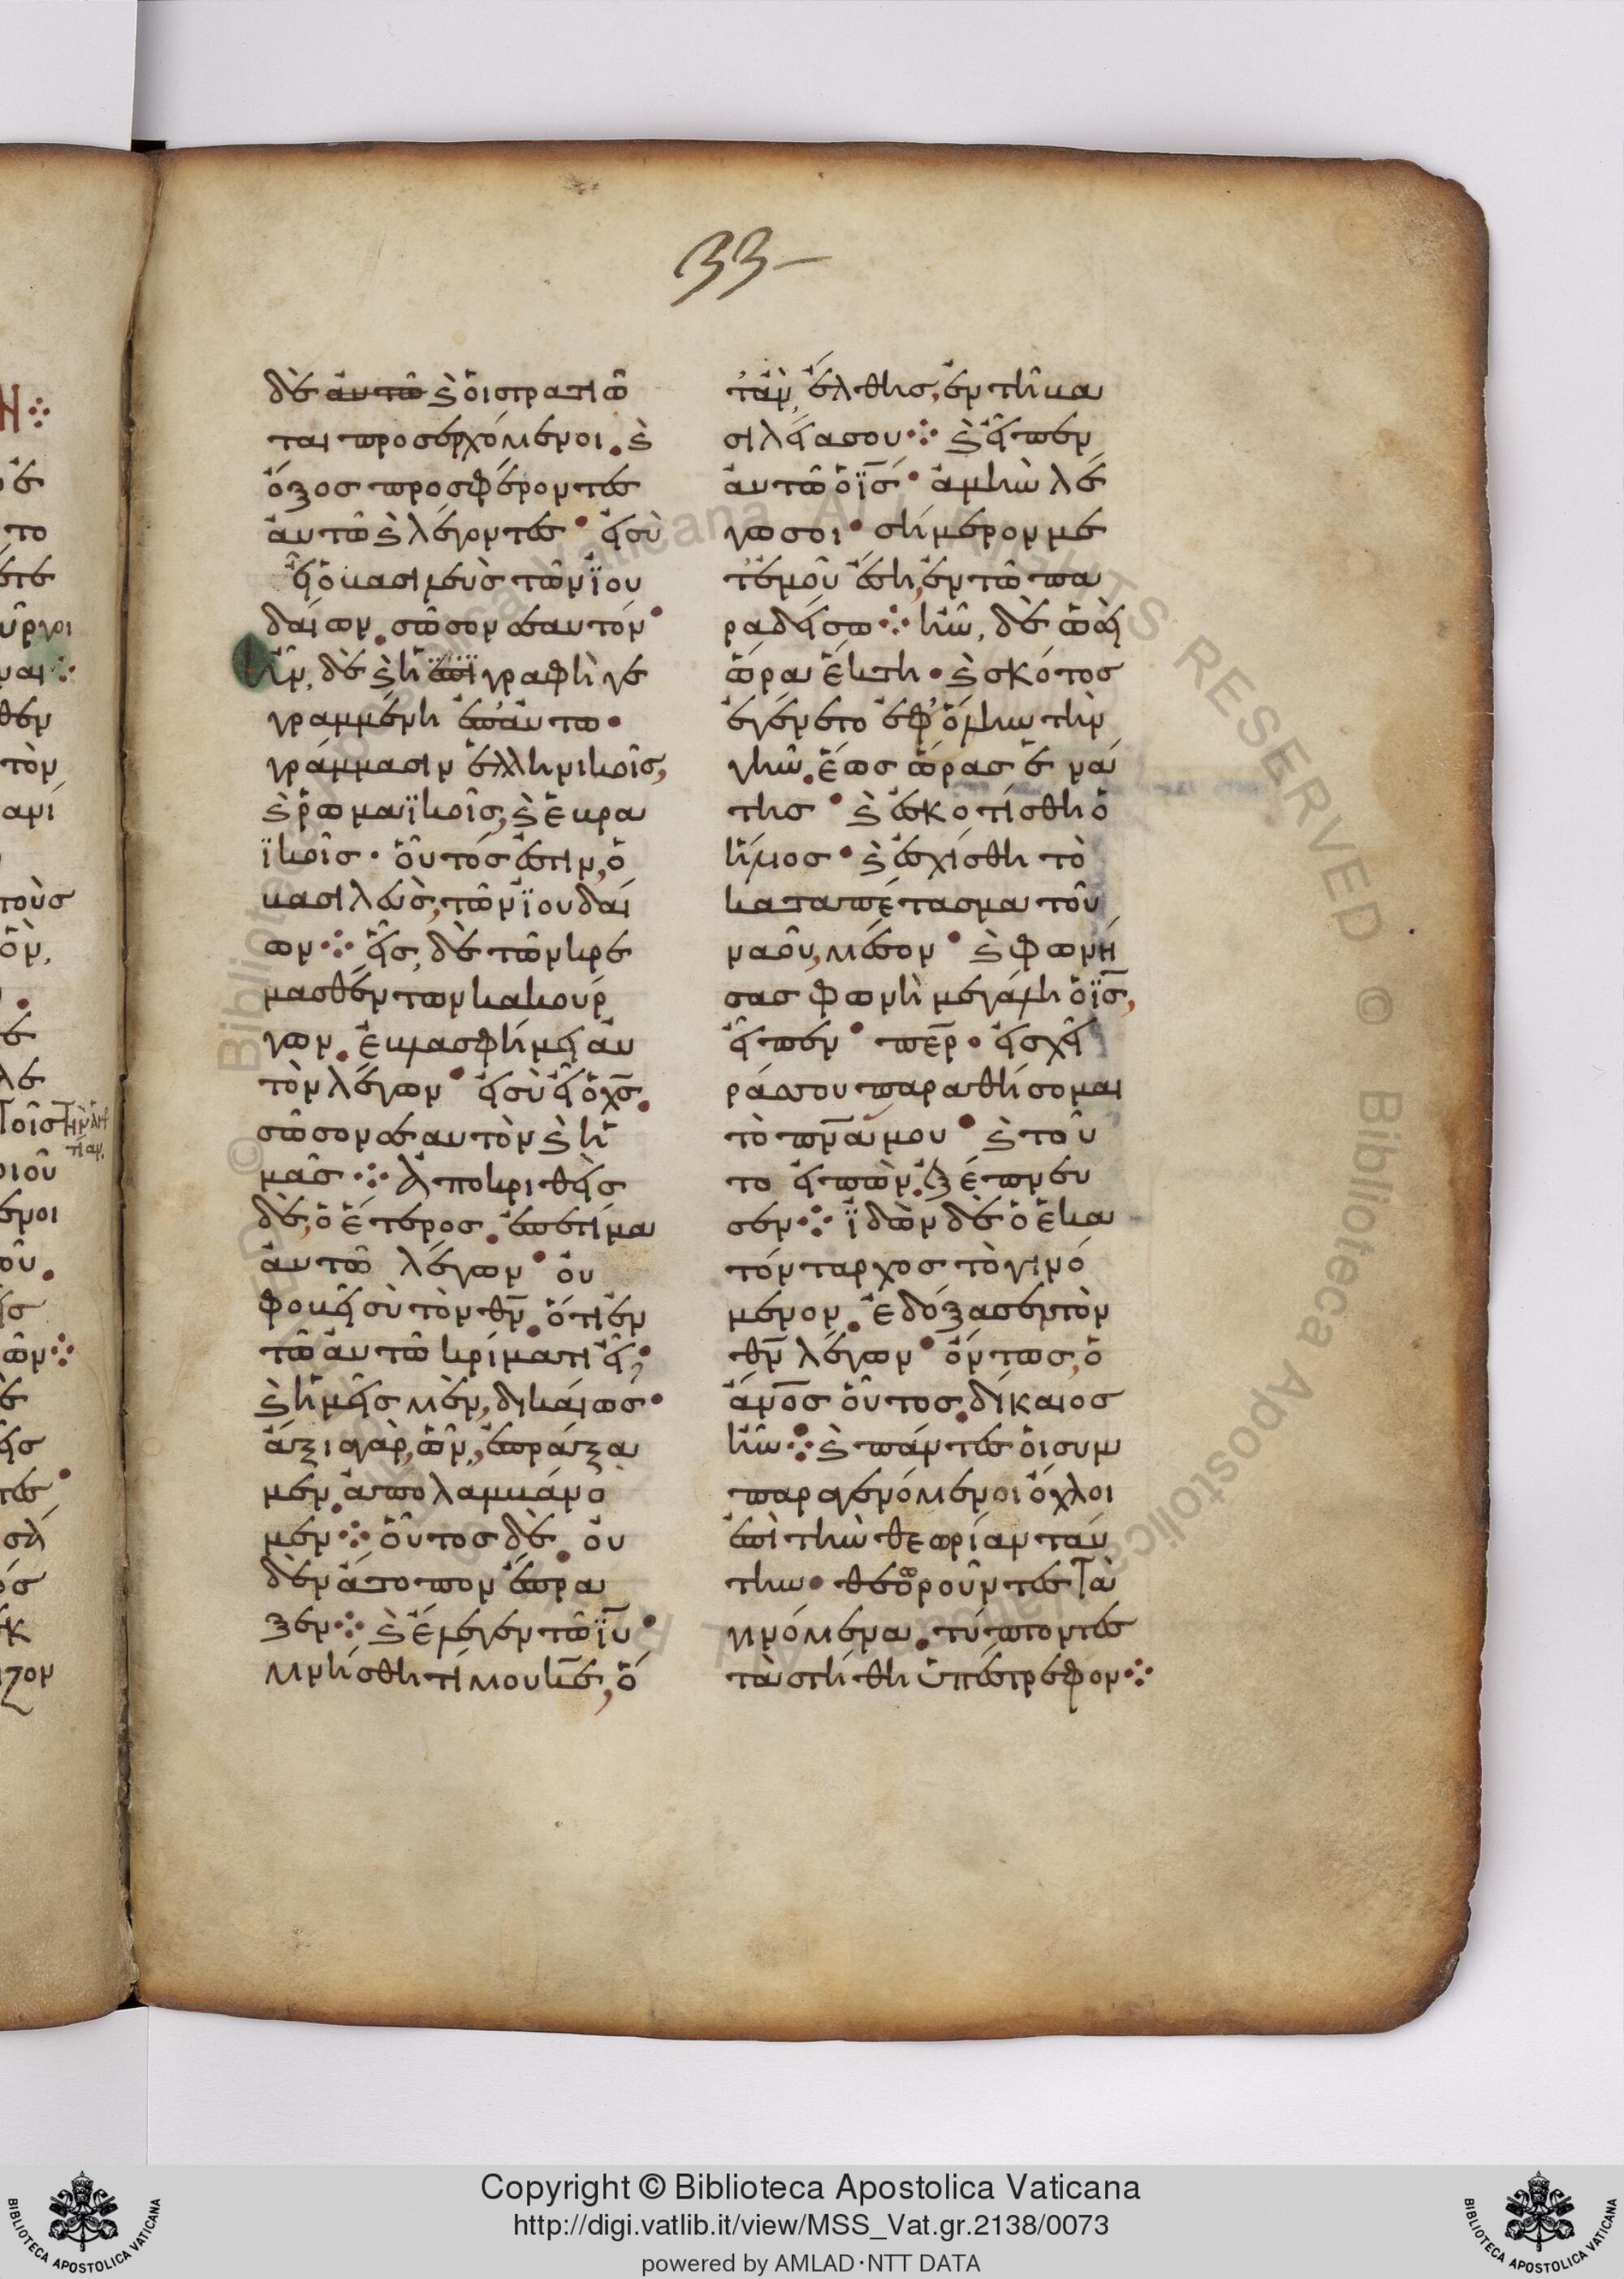 33
δὲ ἀυτῶ ϗ ὁι στρατιῶ
ται προσερχόμενοι. ϗ
ὄξος προσφέροντες
ἀυτῶ ϗ λέγοντες· εἰ σὺ
εἶ ὁ βασιλεὺς τῶν ϊου
δαίων. σῶσον σεαυτόν·
ἦν, δὲ ϗ ἡ ἐπιγραφὴ γε
γραμμένη ἐπ' ἀυτω·
γράμμασιν ἑλληνικοῖς,
ϗ ῥωμαϊκοῖς, ϗ ἑβρα
ϊκοῖς· ὁῦτός ἐστιν, ὁ
βασιλεὺς, τῶν ϊουδαί
ων ⁘ εἷς, δὲ τῶν κρε
μασθέντων κακούρ
γων. ἐβλασφήμει ἀυ
τὸν λέγων· εἰ σὺ εἶ ὁ χς.
σῶσον σεαυτὸν ϗ ἡ
μᾶς ⁘ Ἀποκριθεὶς
δὲ, ὁ ἕτερος. ἐπετίμα
ἀυτῶ λέγων· ὀυ
φοβεῖ σὺ τὸν θν. ὅτι ἐν
τῶ ἀυτῶ κρίματι εἶ;
ϗ ἡμεῖς μὲν, δικαίως·
ἄξια γὰρ, ὧν, ἐπράξα
μεν. ἀπολαμβάνο
μεν ⁘ ὁῦτος δὲ. ὀυ
δὲν ἄτοπον ἔπρα
ξεν ⁘ ϗ ἔλεγεν τῶ ϊυ·
μνήσθητί μου κε, ὁ
τὰν, ἔλθης, ἐν τῆ βα
σιλεία σου ⁘ ϗ εἶπεν
ἀυτῶ ὁ ϊς· ἀμὴν λέ
γω σοι· σήμερον με
τ' ἐμοῦ ἔση, ἐν τῶ πα
ραδείσω ⁘ ἦν, δὲ ὡσεὶ
ὥρα ἕκτη· ϗ σκότος
ἐγένετο ἐφ' ὅλην τὴν
γῆν. ἕως ὥρας ἐννά
της· ϗ ἐσκοτίσθη ὁ
ἥλιος· ϗ ἐσχίσθη τὸ
καταπέτασμα τοῦ
ναοῦ, μέσον· ϗ φωνή
σας φωνὴ μεγάλη ὁ ϊς,
εἶπεν· περ· εἰς χεῖ
ράς σου παραθήσομαι
τὸ πνα μου· ϗ τοῦ
το εἰπὼν. ἐξέπνευ
σεν ⁘ ϊδὼν δὲ ὁ ἑκα
τόνταρχος τὸ γινό
μενον. ἐδόξασεν τὸν
θν λέγων· ὄντως, ὁ
ἀνος ὁῦτος. δίκαιος
ἦν ⁘ ϗ πάντες ὁι συμ
παραγενόμενοι ὄχλοι
ἐπὶ τὴν θεωρίαν ταύ
την· θεωροῦντες τὰ
γινόμενα. τύπτοντες
τὰ στήθη ὑπέστρεφον ⁘
Copyright © Biblioteca Apostolica Vaticana
http://digi.vatlib.it/view/MSS_Vat.gr.2138/0073
powered by AMLAD·NTT DATA
BIBLIOTECA APOSTOLICA VATICANA
BIBLIOTECA APOSTOLICA VATICANA